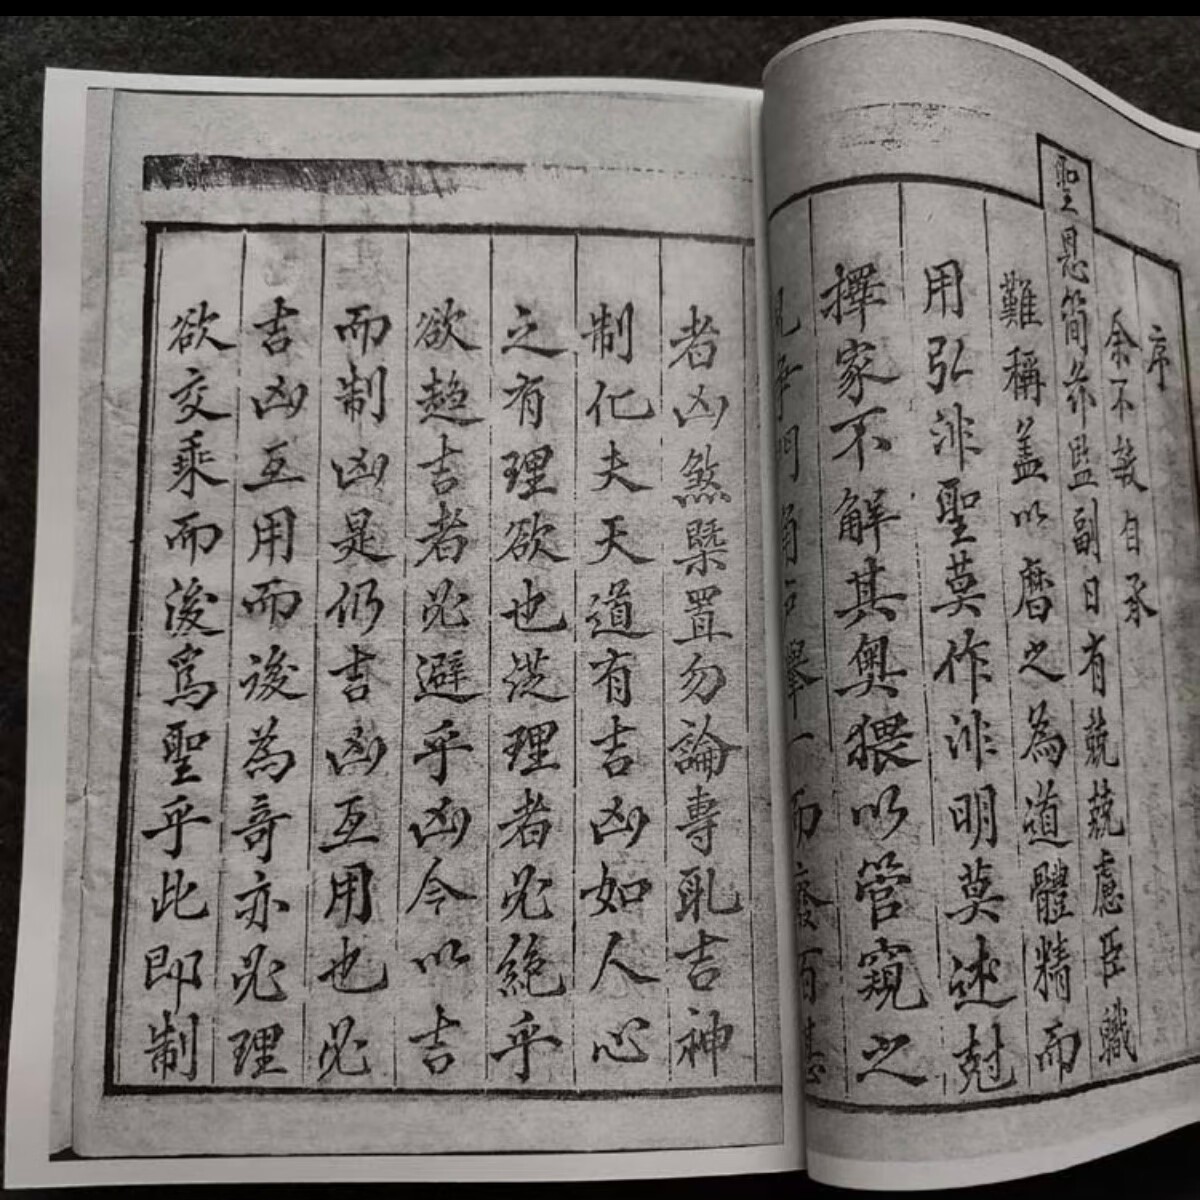 序
余不敏自承
聖恩簡命監副日有兢兢慮臣職
難稱蓋以曆之為道體精而
用弘洪聖莫作洪明莫述尅
擇家不解其奧猥以管窺之
一而廢百甚
者凶煞槩置勿論專取吉神
制化夫天道有吉凶如人心
之有理欲也從理者必絕乎
欲趨吉者必避乎凶今以吉
而制凶是仍吉凶互用也必
吉凶互用而後為奇亦必理
欲交乘而後爲聖乎此即制